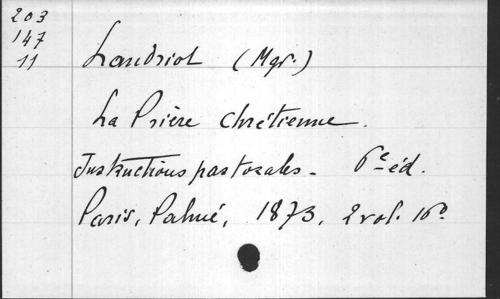 203
147
11
Landriot (Mgr.)
La Prière chrétienne.
Instructions pastorales - 6e éd.
Paris, Palmé, 1873, 2 vol. 16°